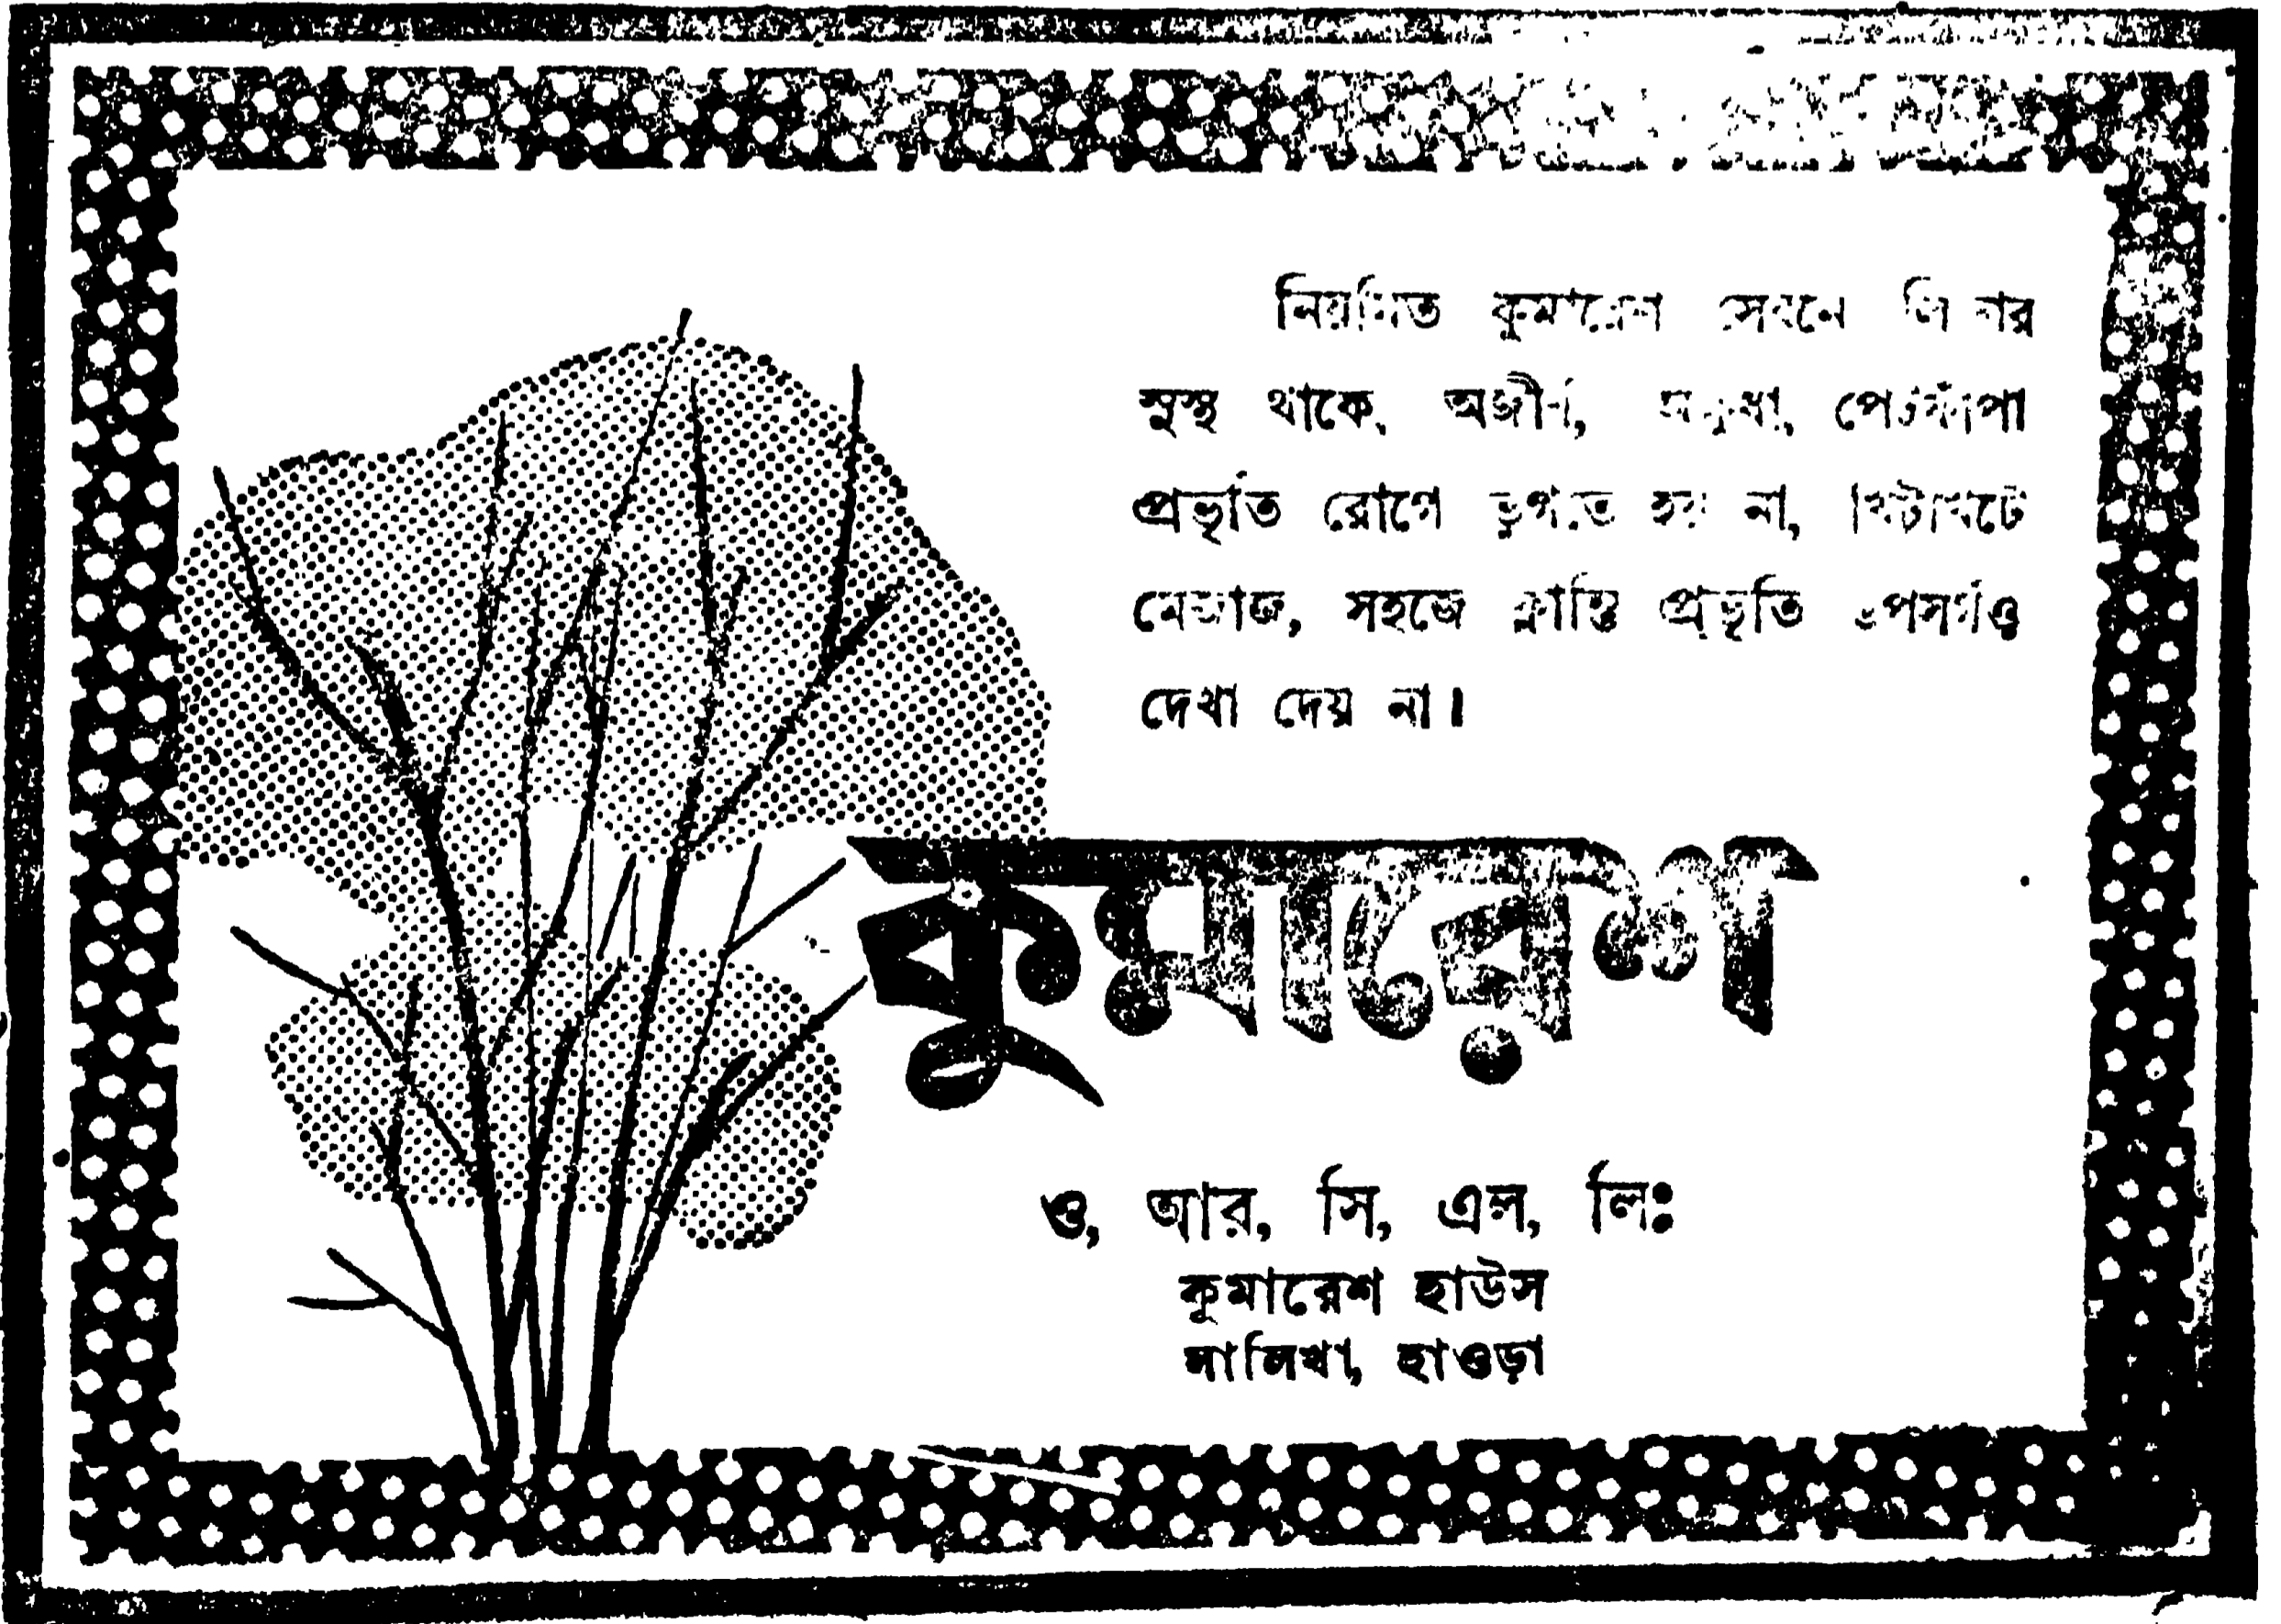 নিয়মিত কুমারেশ সেবনে লিভার
সুস্থ থাকে, অজীর্ণ, পেটফাঁপা
প্রভৃতি রোগে ভুগতে হয় না, খিটখিটে
মেজাজ, সহজে ক্লান্তি প্রভৃতি উপসর্গও
দেখা দেয় না।
কুমারেশ
ও, আর, সি, এল, লিঃ
কুমারেশ হাউস
সালিখা, হাওড়া